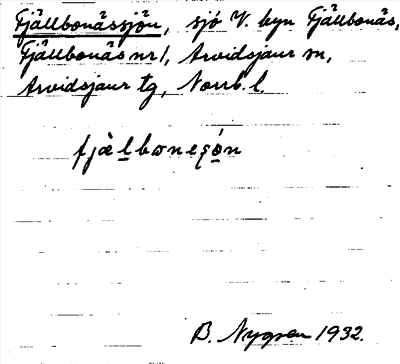 Fjällbonässjön, sjö V. byn Fjällbonäs,
Fjällbonäs nr 1, Arvidsjaur sn,
Arvidsjaur tg, Norrb. l.
fjàl̲bonesǫ́n
B. Nygren 1932.